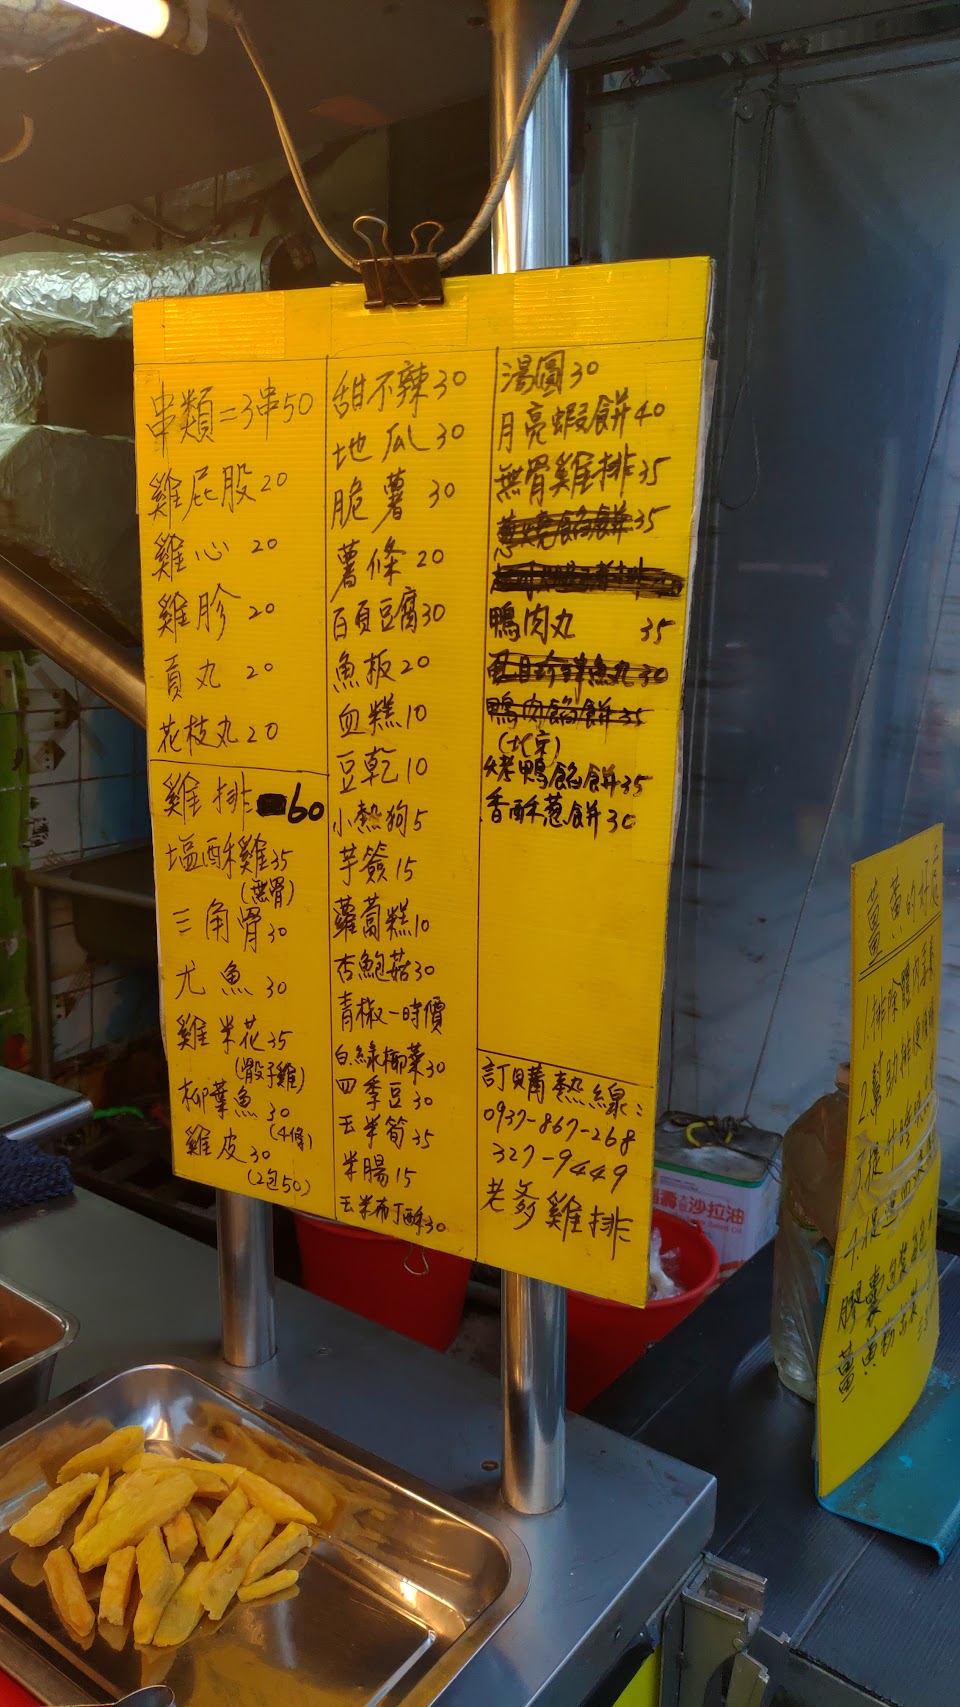 串類=3串50
雞屁股20
雞心 20
雞胗 20
貢丸 20
花枝丸20
雞排 60
塩酥雞35
(無骨)
三角骨30
尤魚 30
雞米花35
(骰子雞)
柳葉魚 30
(4條)
雞皮30
(2包50)
甜不辣30
地瓜30
脆薯 30
薯條 20
百頁豆腐30
魚板20
血糕10
豆乾10
小熱狗5
芋簽15
蘿蔔糕10
杏鮑菇30
青椒-時價
白綠椰菜30
四季豆30
玉米筍35
米腸15
玉米布丁酥30
湯圓30
月亮蝦餅40
無骨雞排35
蔥燒餡餅35
鴨肉丸 35
鴨肉餡餅35
(北京)
烤鴨餡餅35
香酥蔥餅30
訂購熱線:
0937-867-268
327-9449
老爹雞排
沙拉油
薑黃的好處
1.排除體內毒素
2.幫助排便
4.促進
膠囊包裝
薑黃粉